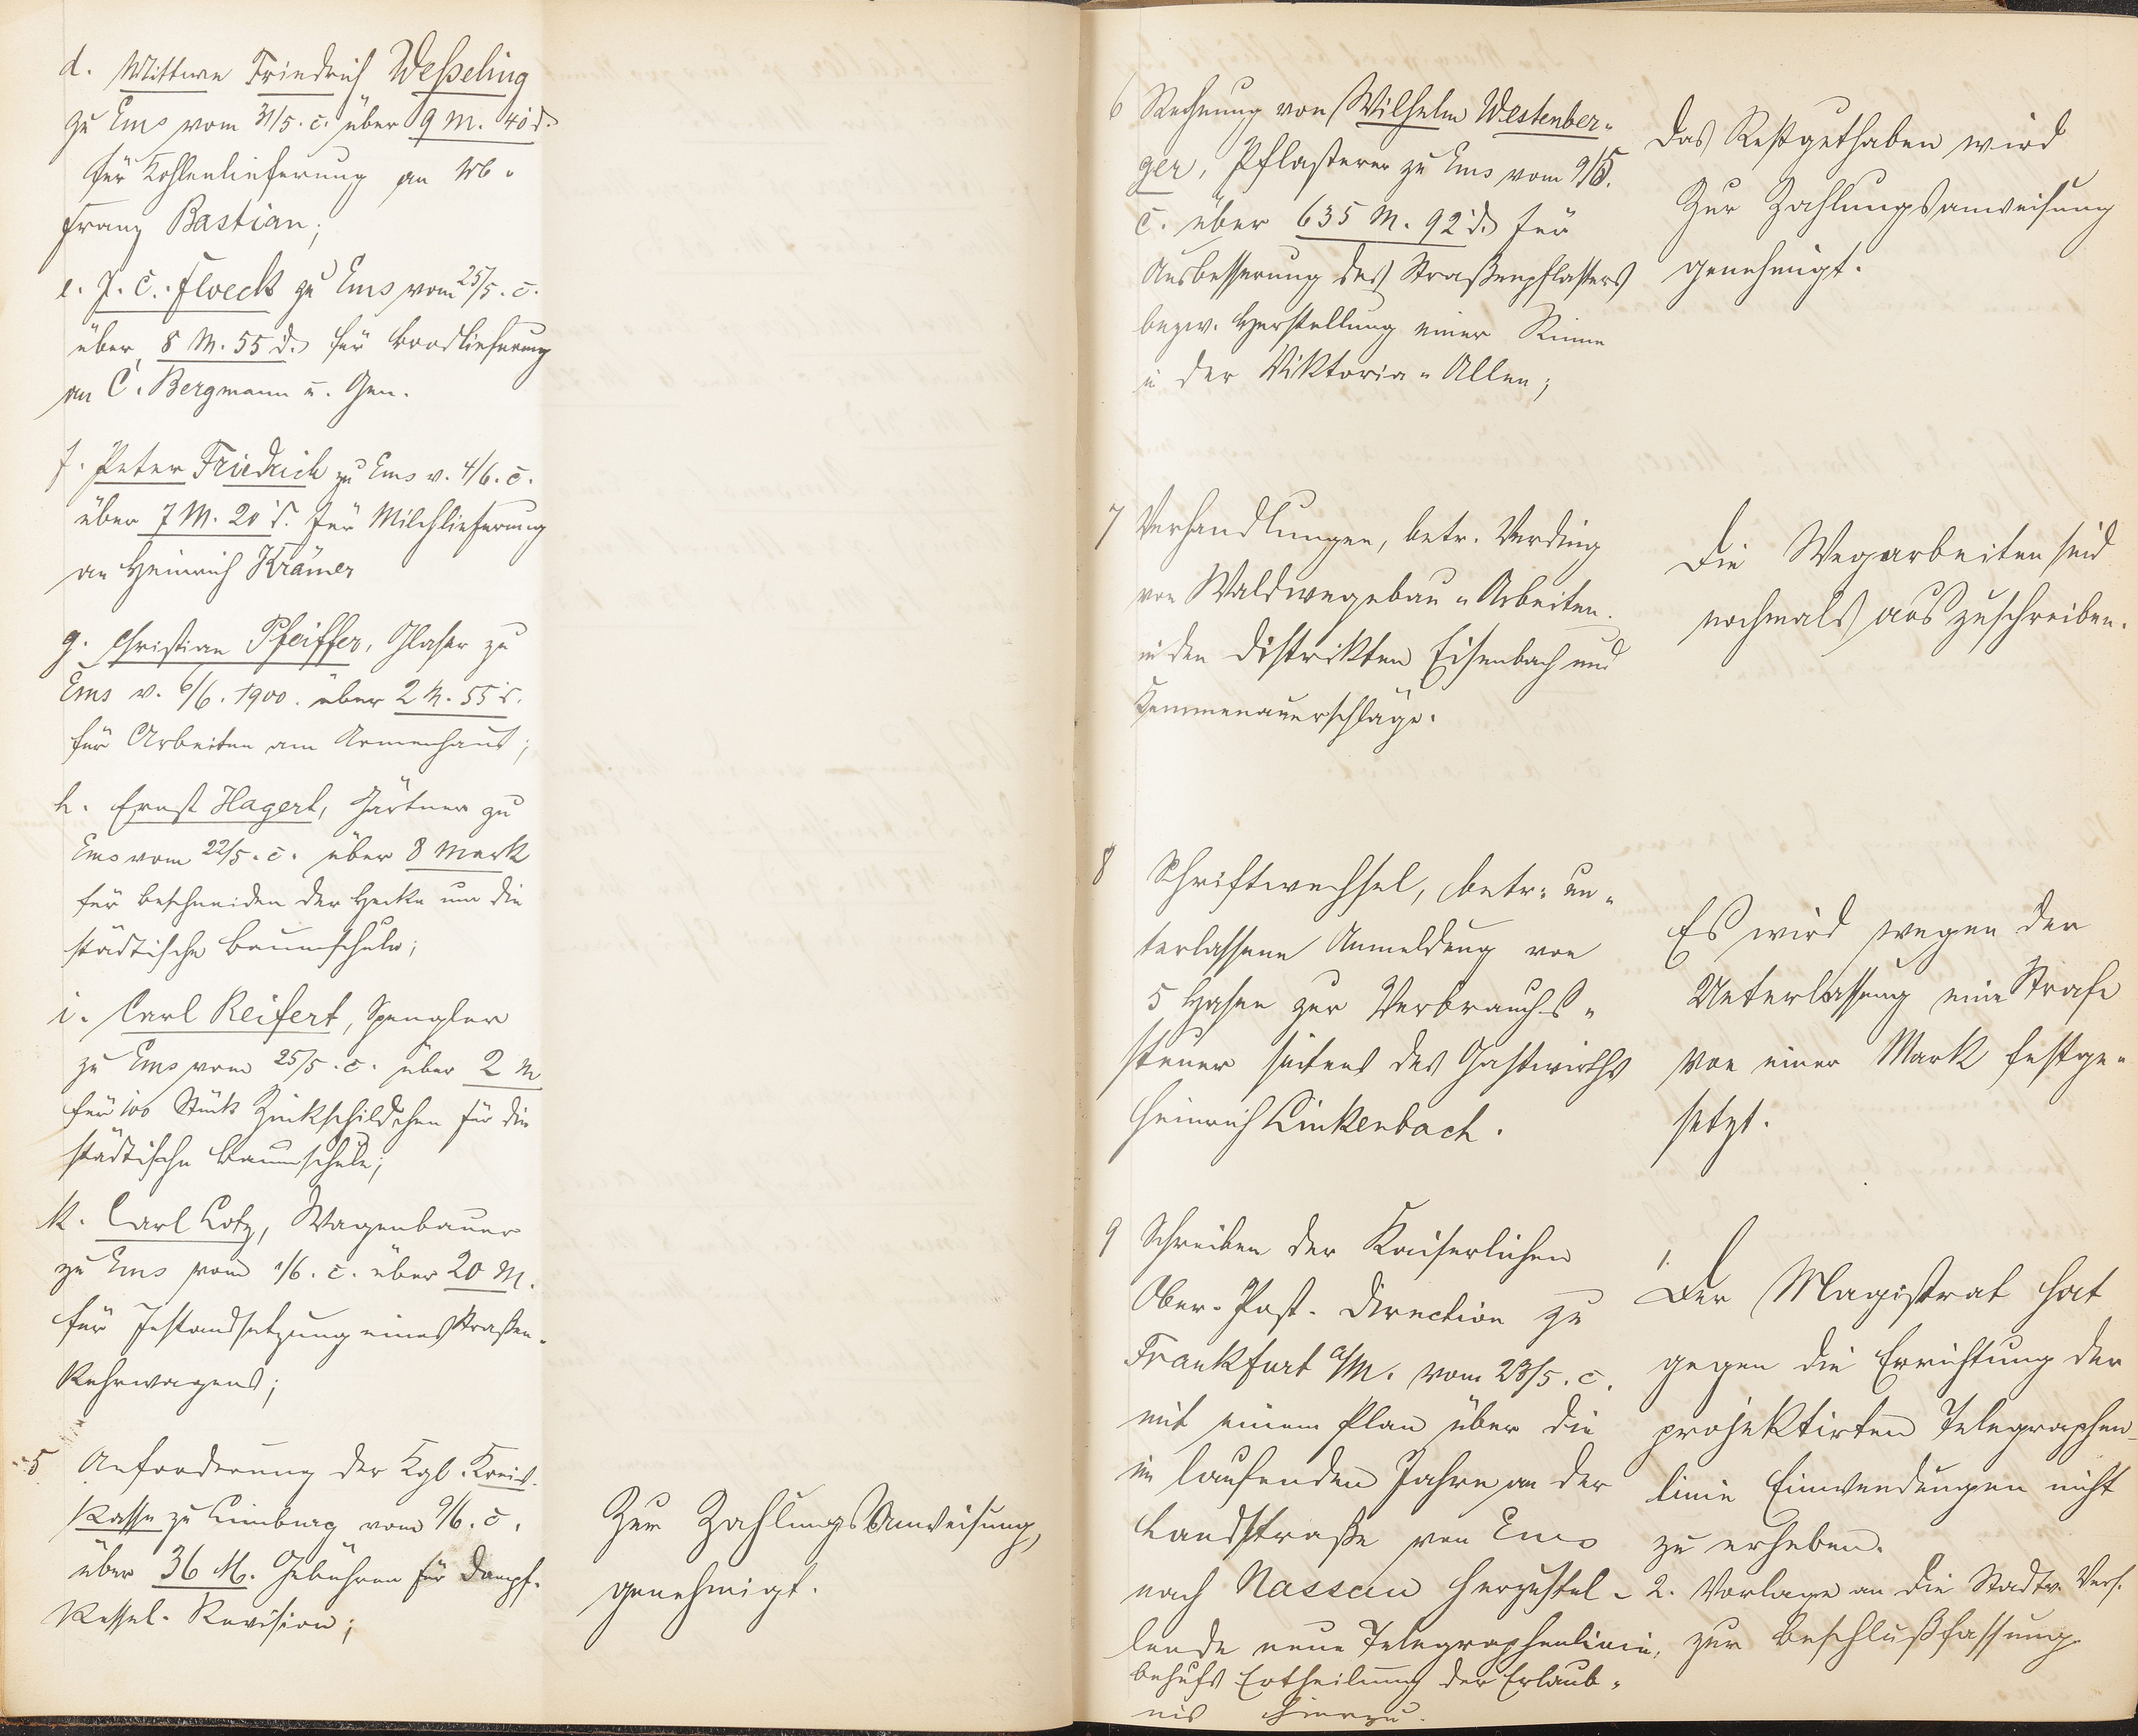 d. Wittwe Friedrich Weßeling
zu Ems vom 31/5. c. über 9 M. 40 d.
für Kohlenlieferung an Wb.
Franz Bastian;
e. J. C. Floeck zu Ems vom 25/5. c.
über 8 M. 55 d. für Brodlieferung
an C. Bergmann u. Gen.
f. Peter Friedrich zu Ems v. 4/6. c.
über 7 M. 20 d. für Milchlieferung
an Heinrich Krämer
g. Christian Pfeiffer, Glaser zu
Ems v. 6/6. 1900. über 2 M. 55 d.
für Arbeiten am Armenhaus;
h. Ernst Hagert, Gärtner zu
Ems vom 22/5. c. über 8 Mark
für Beschneiden der Hecke um die
städtische Baumschule;
i. Carl Reifert, Spengler
zu Ems vom 25/5. c. über 2 M
für 100 Stück Zinkschildchen für die
städtische Baumschule;
k. Carl Lotz, Wagenbauer
zu Ems vom 1/6. c. über 20 M.
für Instandsetzung eines Straßen-
Kehrwagens;
5 Anforderung der Kgl. Kreis-
Kasse zu Limburg vom 9/6. c.
über 36 M. Gebühren für Dampf-
Kessel-Revision;
Zur Zahlungsanweisung
genehmigt.
6 Rechnung von Wilhelm Westenber-
ger, Pflasterer zu Ems vom
c. über 635 M. 92 d. für
Ausbesserung des Straßenpflasters
bezw. Herstellung einer Rinne
in der Viktoria-Allee;
Das Restguthaben wird
Zur Zahlungsanweisung
genehmigt.
7 Verhandlungen, betr. Verding
von Waldwegebau-Arbeiten
in den Distrikten Eisenbach und
Kemmenauerschläge.
Die Wegarbeiten sind
nochmals auszuschreiben.
8 Schriftwechsel, betr. un-
terlassene Anmeldung von
5 Hasen zur Verbrauchs-
steuer seitens des Gastwirths
Heinrich Linkenbach.
Es wird wegen der
Unterlassung eine Strafe
von einer Mark festge-
setzt.
9 Schreiben der Kaiserlichen
Ober-Post-Direction zu
Frankfurt a/M. vom 23/5. c.
mit einem Plan über die
im laufenden Jahre an der
Landstraße von Ems
nach Nassau herzustel-
lende neue Telegraphenlinie,
behufs Ertheilung der Erlaub-
nis hierzu.
1. Der Magistrat hat
gegen die Errichtung der
projektirten Telegraphen-
linie Einwendungen nicht
zu erheben.
2. Vorlage an die Stadtv. Vers.
zur Beschlußfassung.